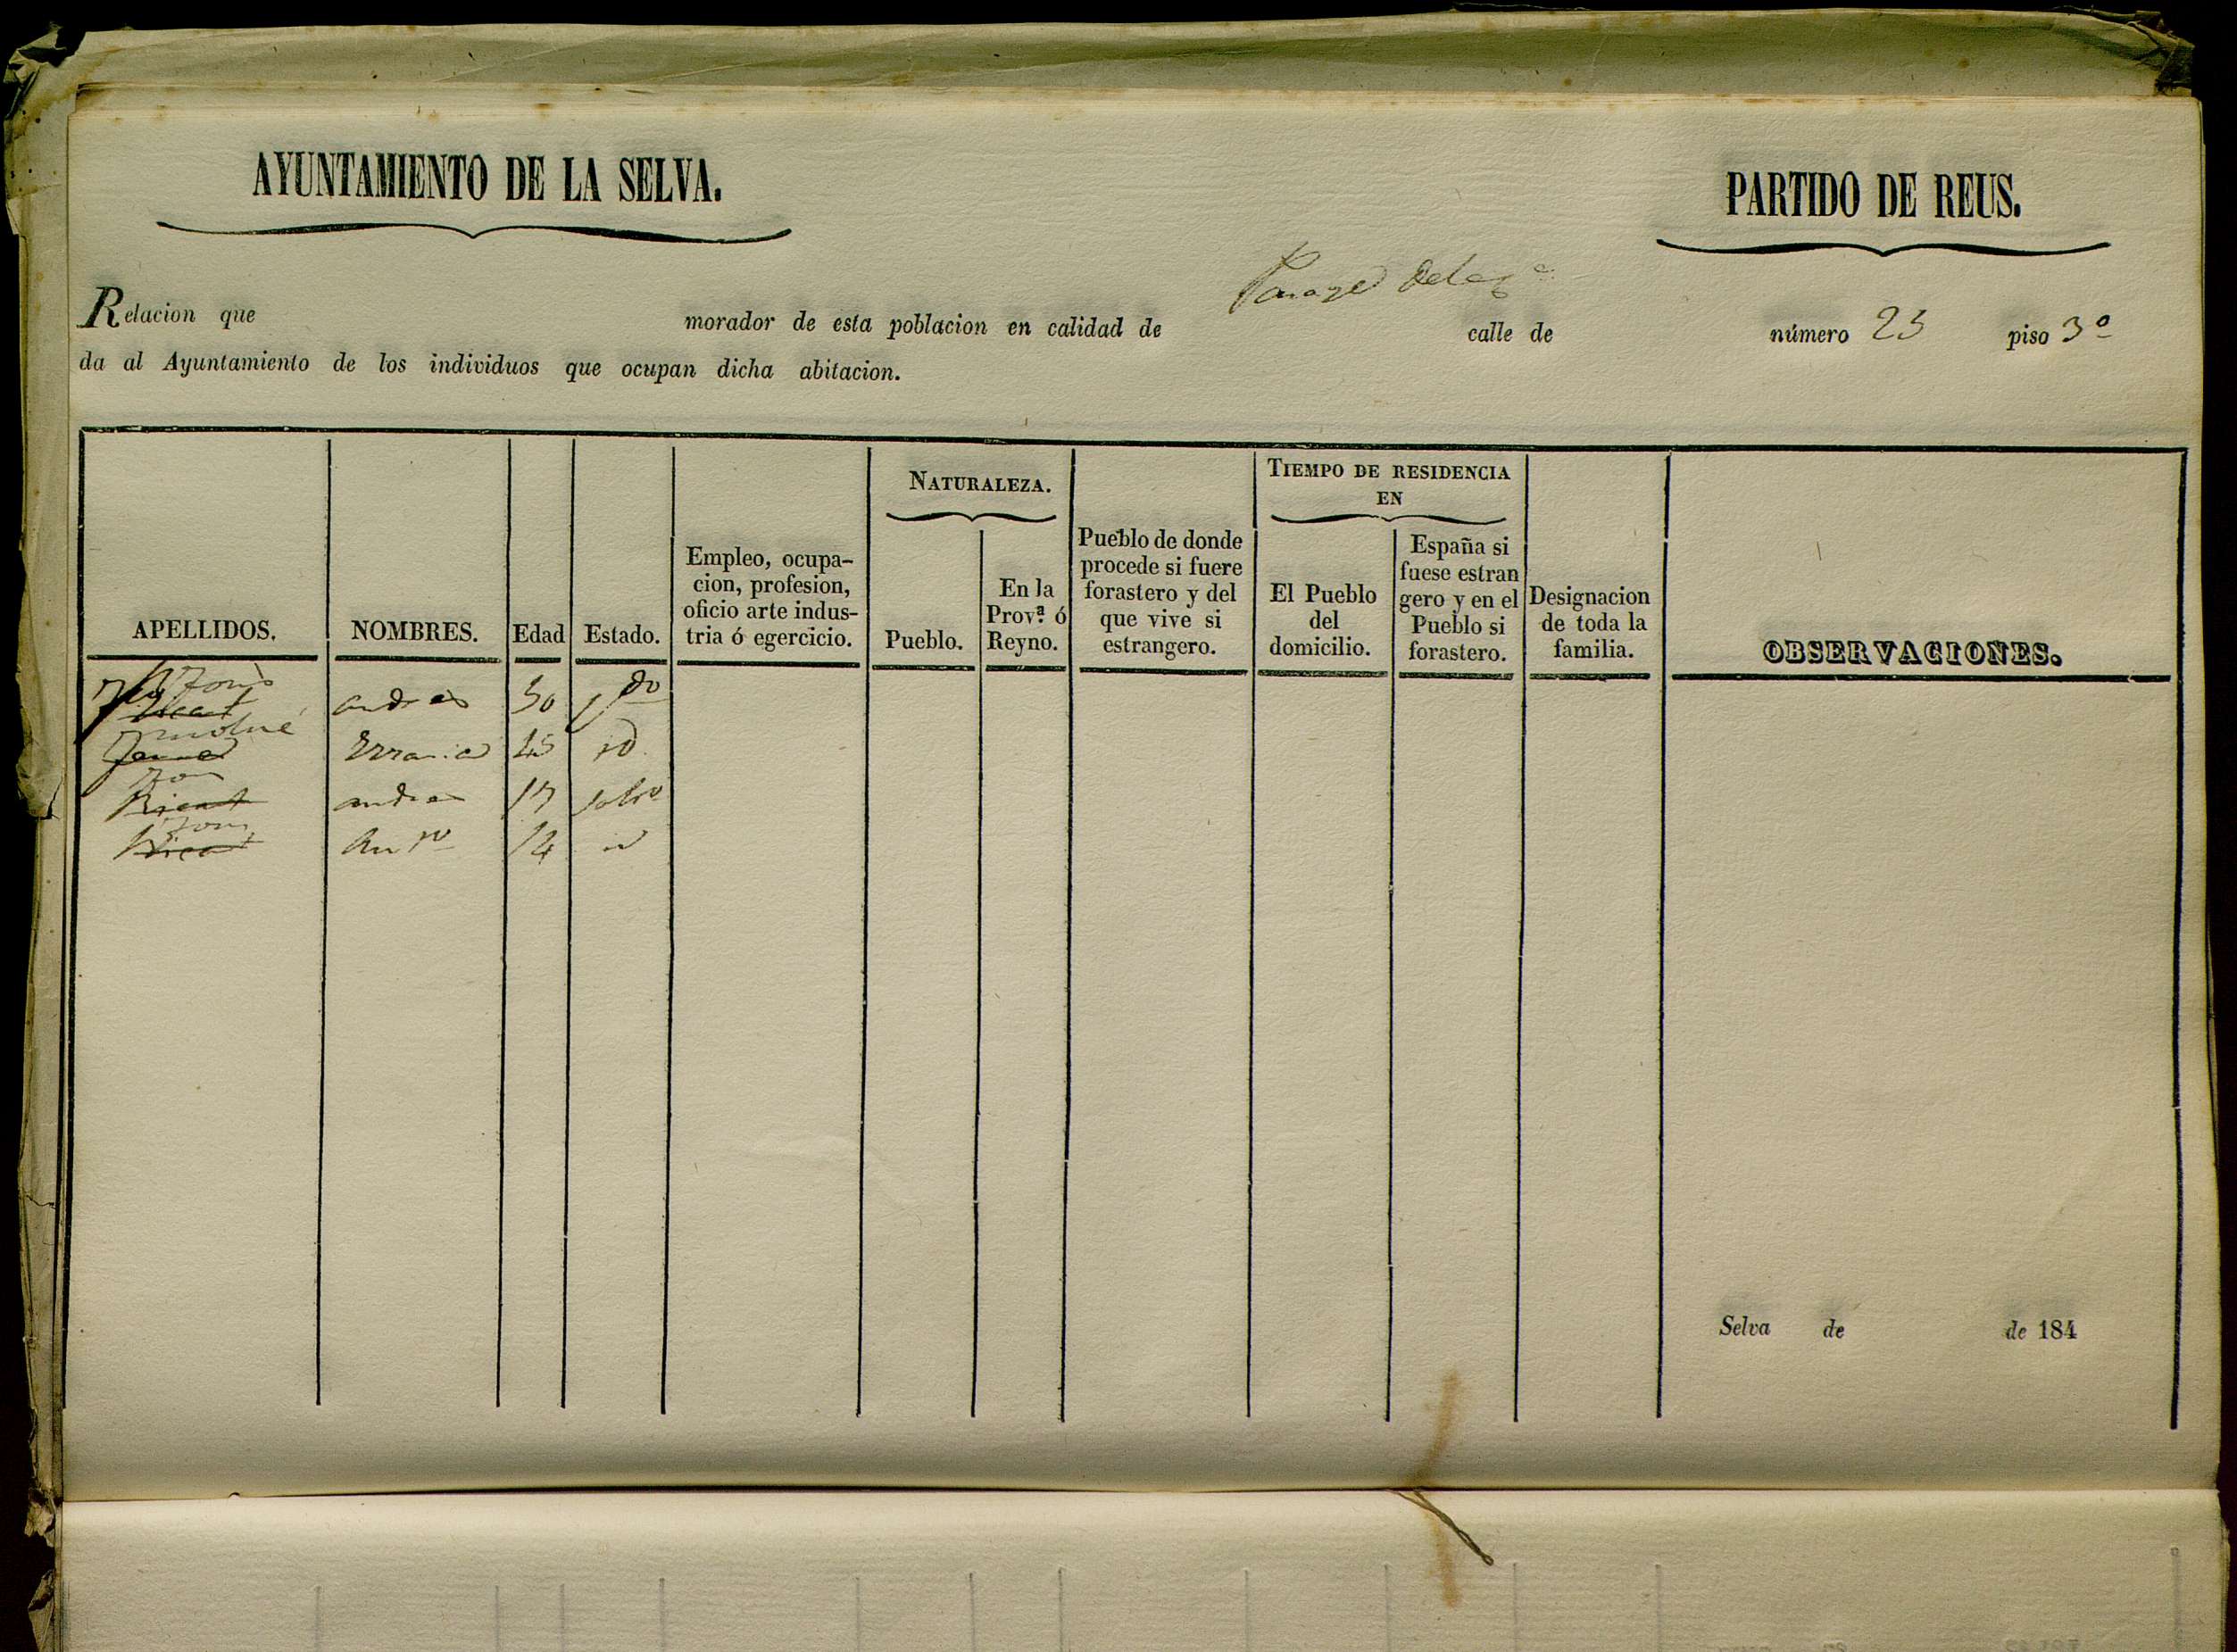 AYUNTAMIENTO DE LA SELVA.
PARTIDO DE REUS.
Relacion que morador de esta poblacion en calidad de calle de número 25 piso 3º
da al Ayuntamiento de los individuos que ocupan dicha abitacion.
APELLIDOS.
NOMBRES.
Edad
Estado.
Empleo, ocupa-
cion, profesion,
oficio arte indus-
tria ó egercicio.
NATURALEZA.
Pueblo.
En la
Provª ó
Reyno.
Pueblo de donde
procede si fuere
forastero y del
que vive si
estrangero.
TIEMPO DE RESIDENCIA
EN
El Pueblo
del
domicilio.
España si
fuese estran
gero y en el
Pueblo si
forastero.
Designacion
de toda la
familia.
OBSERVACIONES.
andres 50
id
andres 17
14
Selva de de 184